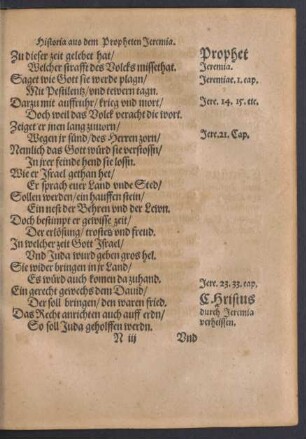 Historia aus dem Propheten Jeremia.
Zu dieser zeit gelebet hat/
Welcher strafft des Volcks missethat.
Saget wie Gott sie werde plagn/
Mit Pestilentz/ vnd tewern tagn.
Darzu mit auffruhr/ krieg vnd mort/
Doch weil das Volck veracht die wort.
Zeiget er jhn lang zuuorn/
Wegen jr sünd/ des Herren zorn/
Nemlich das Gott würd sie verstossn/
In jrer feinde hend sie lossn.
Wie er Jsrael gethan het/
Er sprach euer Land vnde Sted/
Sollen werden/ ein hauffen stein/
Ein nest der Behren vnd der Lewn.
Doch bestimpt er gewisse zeit/
Der erlösung/ trostes vnd freud.
In welcher zeit Gott Jsrael/
Vnd Juda wurd geben gros hel.
Sie wider bringen in jr Land/
Es würd auch komen da zuhand.
Ein gerecht gewechs dem Dauid/
Der soll bringen/ den waren fried.
Das Recht anrichten auch auff erdn/
So soll Juda geholffen werdn.
N iij Vnd
Prophet
Jeremia.
Jeremiae. 1. cap.
Jere. 14. 15. etc.
Jere. 21. Cap.
Jere. 23. 33. cap.
CHristus
durch Jeremia
verheissen.